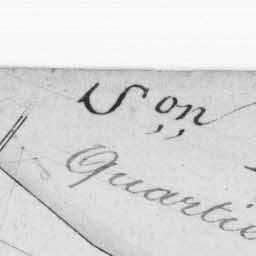 Son
Quartie